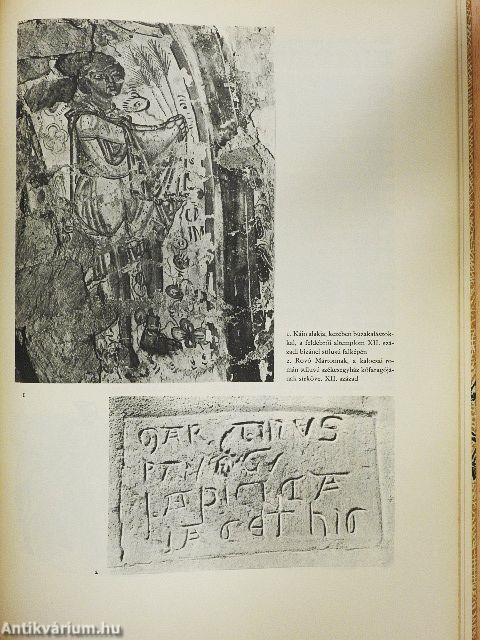 1. Káin alakja, kezében búzakalászok-
kal, a feldebrői altemplom XII. szá-
zadi bizánci stílusú falképén
2. Rovó Mártonnak, a kalocsai ro-
mán stílusú székesegyház kőfaragójá-
nak sírköve. XII. század
1
MARTINVS
LAPICIDA
IACET hIC
2
Antikvárium.hu